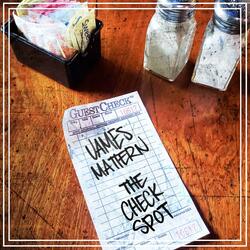 GUEST CHECK
JAMES
MATTERN
THE
CHECK
SPOT